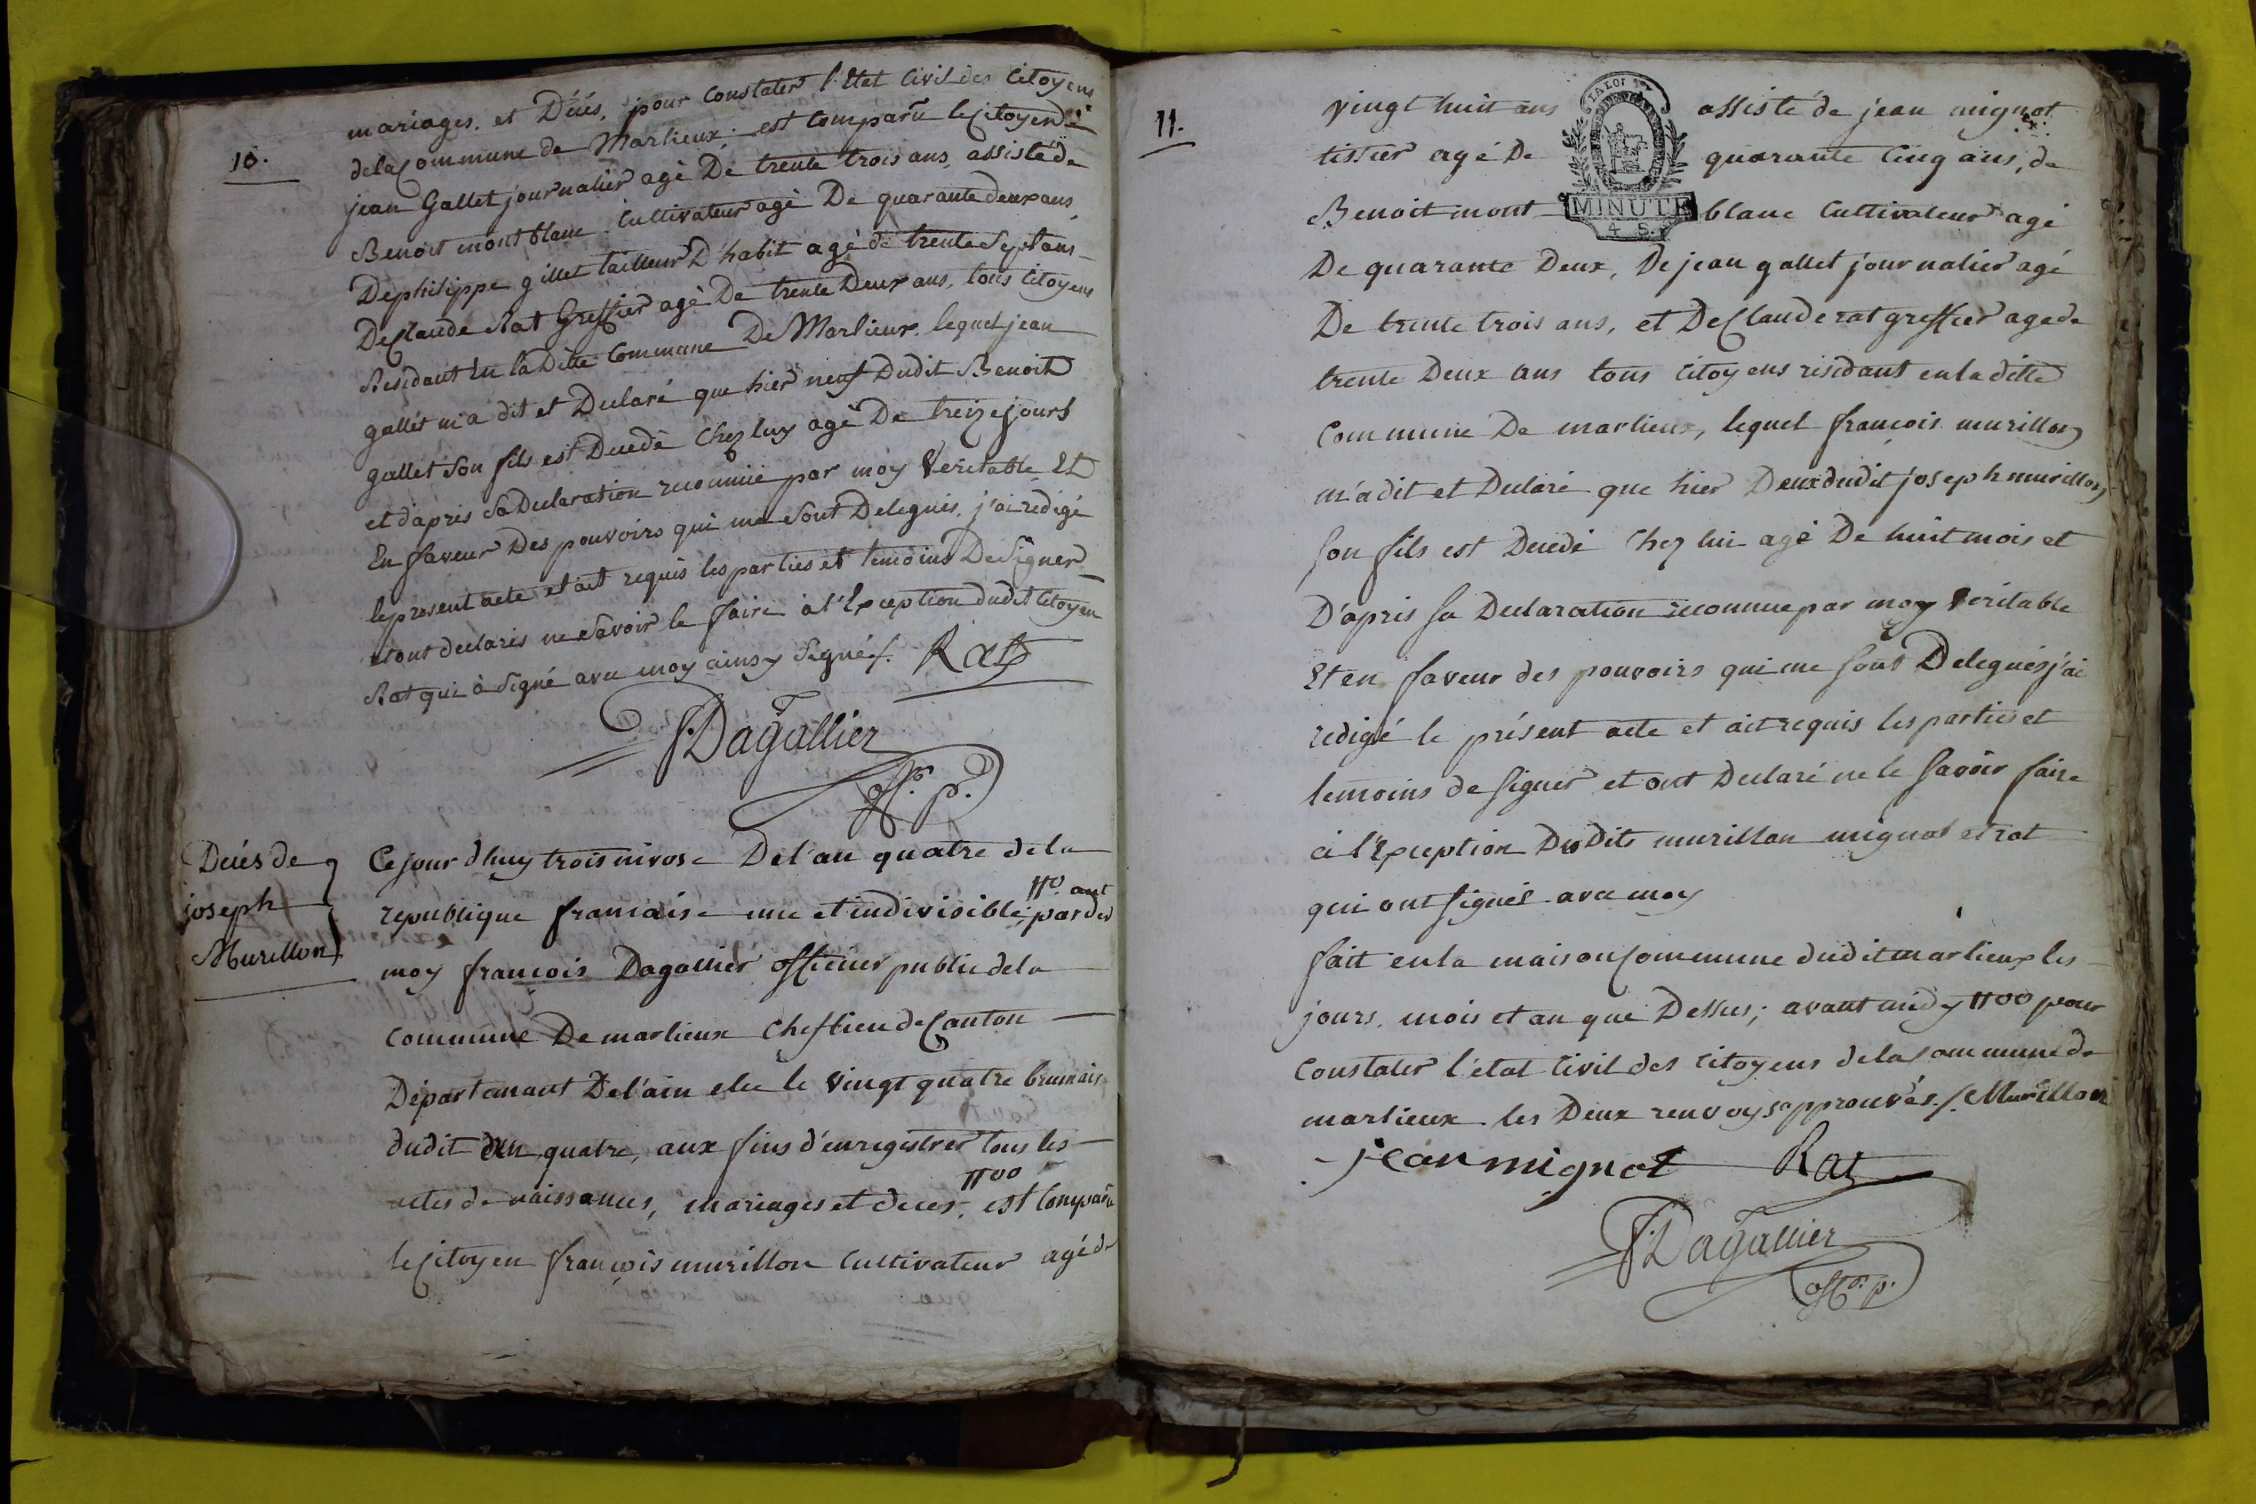 10.
mariages, et Décés, pour constater l'Etat Civil des Citoyens
dela Commune de Marlieux; est comparu le Citoyen
jean Gallet journalier agé De trente trois ans, assisté de
Benoit montblanc Cultivateur agé De quarante deux ans,
De philippe gillet tailleur D'habit agé de trente Sept ans
De Claude Rat Greffier agé De trente Deux ans, tous Citoyens
Residant En la Ditte Commune De Marlieux, lequel jean
gallet m'a dit et Declaré que hier neuf Dudit Benoit
gallet Son fils est Decedé Chez luy agé De treize jours
et d'apris Sa Declaration reconnüe par moy Veritable Et
En faveur Des pouvoirs qui me Sont Delegués, j'ai redigé
le present acte et ait requis les parties et temoins De Signer
et ont declarés ne Savoir le faire à l'Exception dudit Citoyen
Rat qui à Signé avec moy ainsy Signé /. Rat
F. Dagallier
off. p.
Decés de
joseph
Murillon
Ce jour d'huy trois nivose De l'an quatre de la
republique francaise une et indivisible, #o pardev ant
moy francois Dagallier officier public dela
commune De marlieux Chef lieu de Canton
Départemant De l'ain elu le Vingt quatre brumaire
dudit an quatre, aux fins d'enregistrer tous les
actes de naissances, mariages et deces, #oo est Comparu
le Citoyen françois murillon Cultivateur agé de
11.
vingt huit ans assisté de jean mignot
tissier agé De quarante Cinq ans, de
LA LOI
MINUTE
4 S.
Benoit mont blanc Cultivateur agé
De quarante Deux, De jean gallet journalier agé
De trente trois ans, et De Claude rat greffier age de
trente Deux ans tous Citoyens residant en la ditte
Commune De marlieux, lequel francois murillon
m'a dit et Delaré que hier Deux dudit joseph murillon
Son fils est Decedé Chez lui agé De huit mois et
D'apris Sa Declaration reconnue par moy Veritable
Et en faveur des pouvoirs qui me Sont Delegués j'ai
redigé le présent acte et ait requis les parties et
temoins de Signer et ont Declaré ne le Savoir faire
à l'Exception DesDits murillon mignot et rat
qui ont Signés avec moy
fait en la maison Commune dudit marlieux les
jours, mois et an que Dessus; avant midy #oo pour
Constater l'état Civil des Citoyens dela Commune de
marlieux les Deux renvoys approuvés /. Murillon
jean mignot Rat
F. Dagallier
off. p.